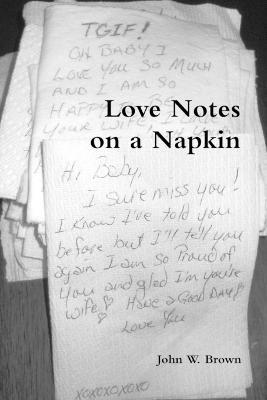 TGIF!
OH BABY I
LOVE YOU SO MUCH
AND I AM SO
HAPPY
YOUR WIFE,
Love Notes
on a Napkin
Hi Baby,
I sure miss you!
I know I've told you
before but I'll tell you
again I am so Proud of
you and glad I'm your
wife ♡ Have a Good Day!
Love You
John W. Brown
xoxoxoxoxo